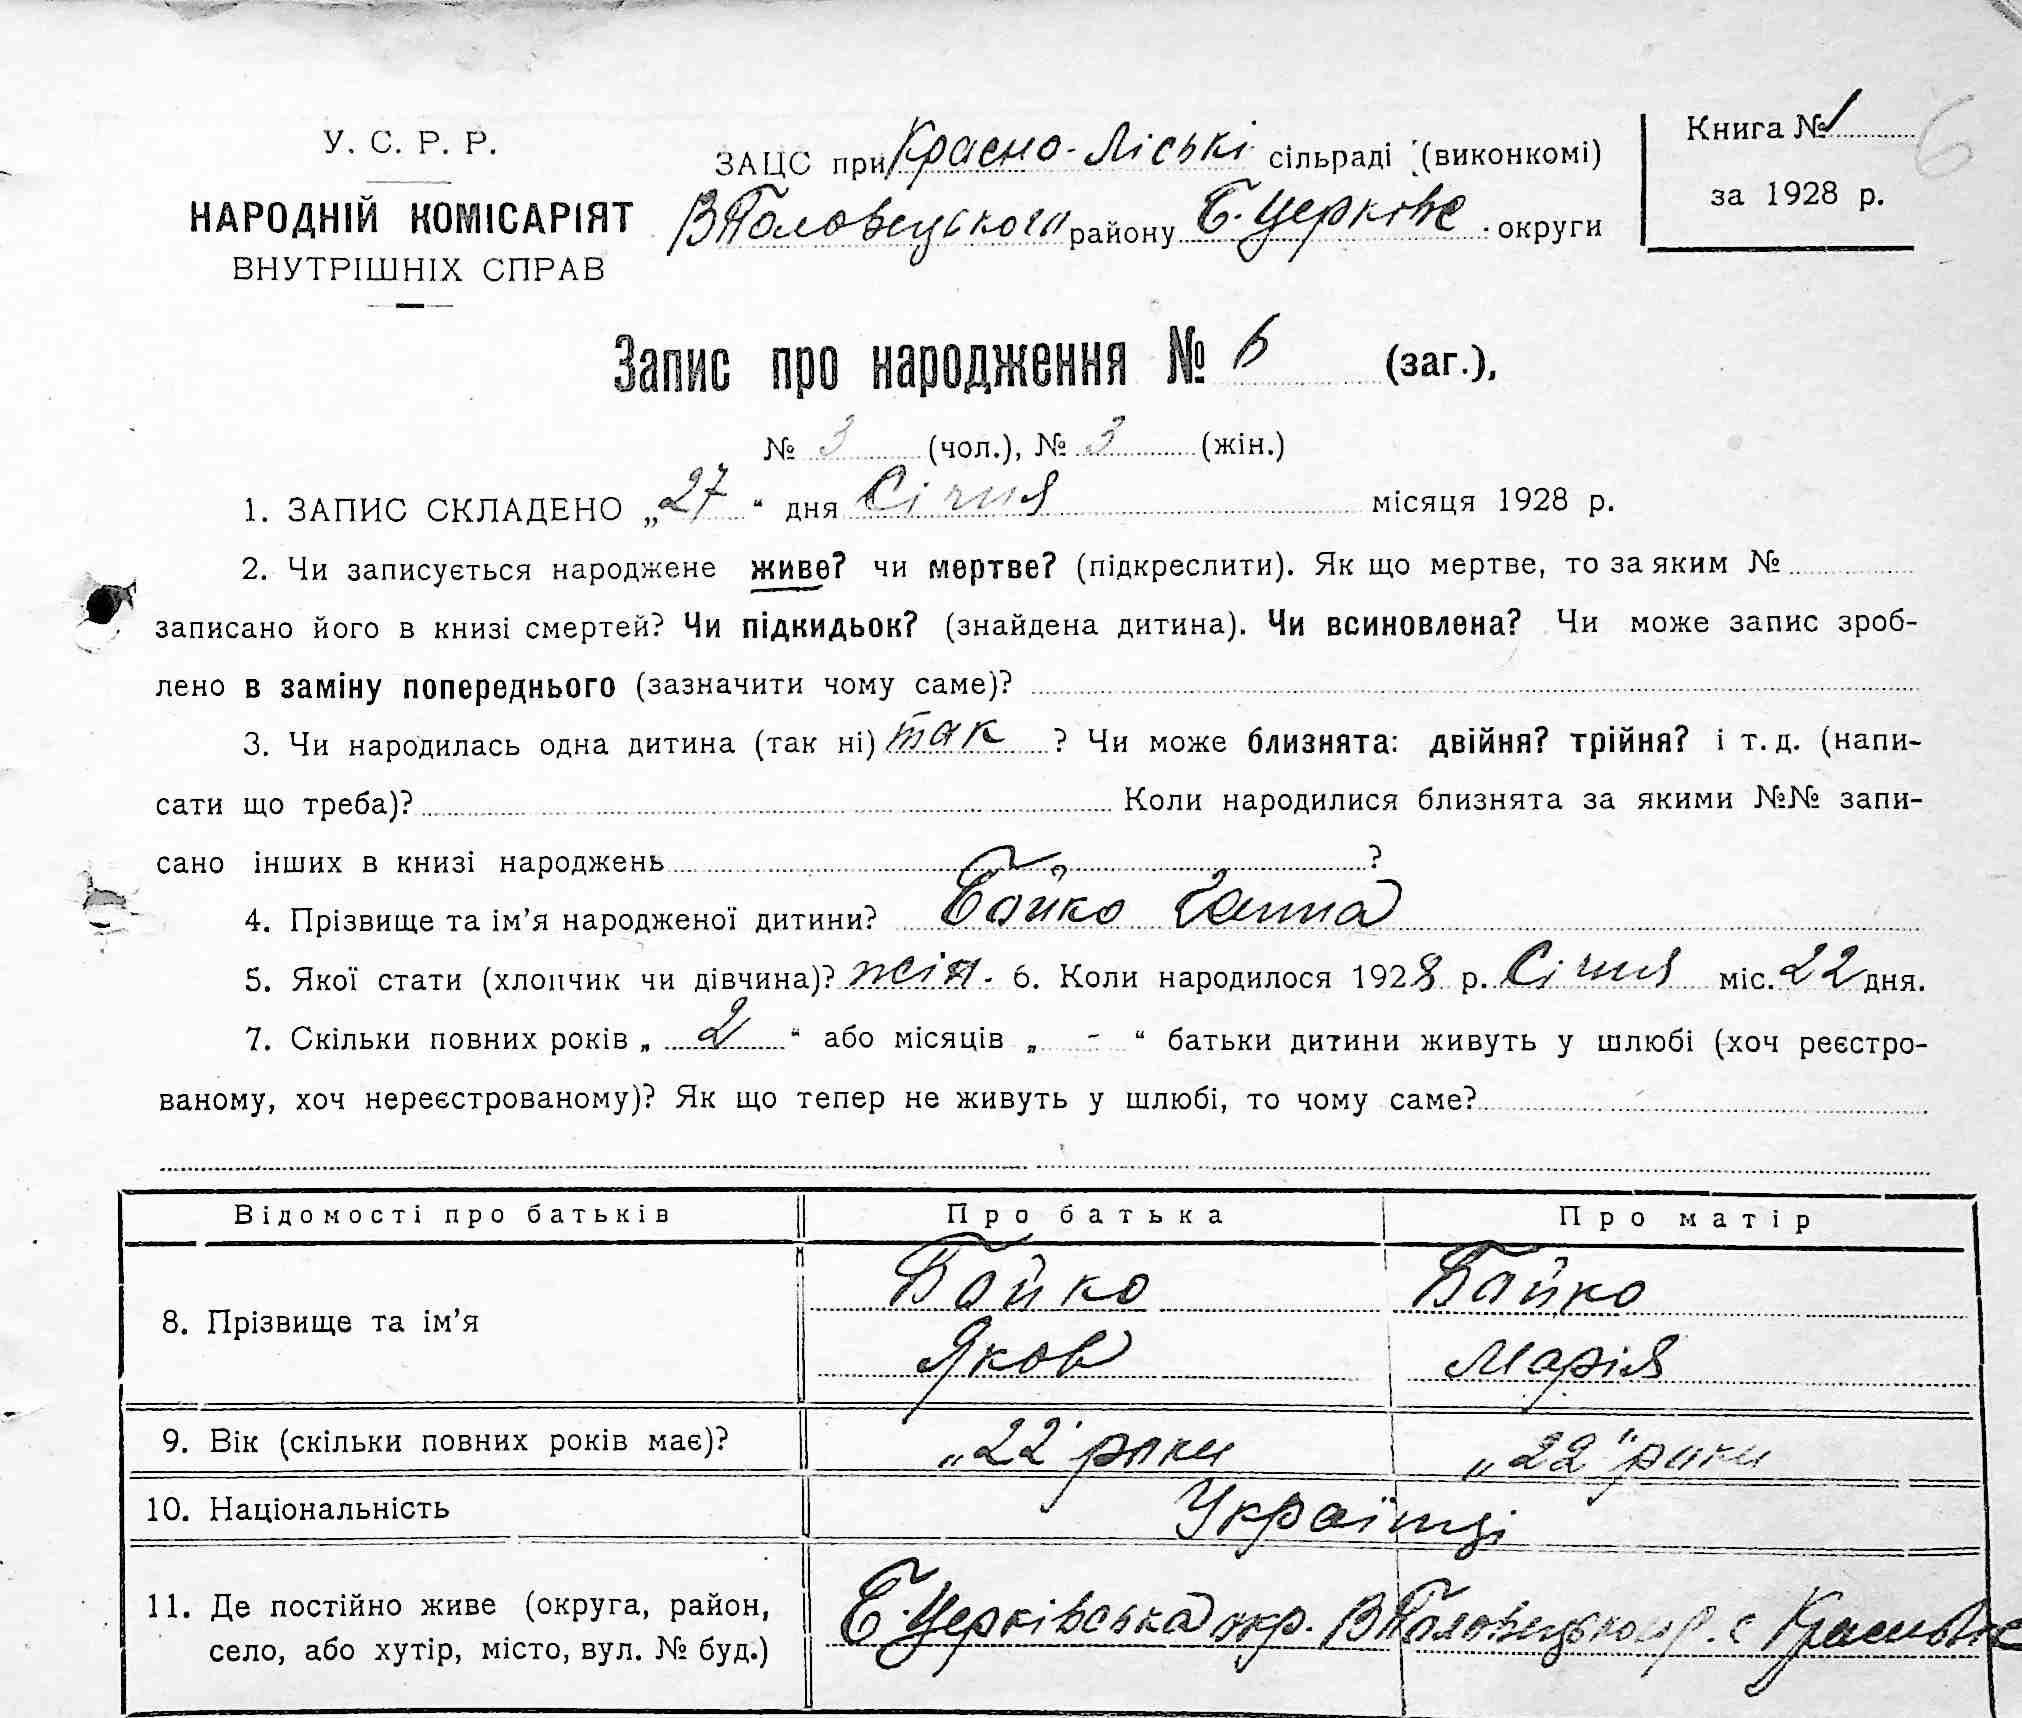 У. С. Р. Р.
НАРОДНІЙ КОМІСАРІЯТ
ВНУТРІШНІХ СПРАВ
ЗАЦС при Красно-Ліські сільраді (виконкомі)
ВПоловецького району Б. Церківс. округи
Книга № 1
за 1928 р.
6
Запис про народження № 6 (заг.),
№ 3 (чол.), № 3 (жін.)
1. ЗАПИС СКЛАДЕНО „27“ дня Січня місяця 1928 р.
2. Чи записується народжене живе? чи мертве? (підкреслити). Як що мертве, то за яким №
записано його в книзі смертей? Чи підкидьок? (знайдена дитина). Чи всиновлена? Чи може запис зроб-
лено в заміну попереднього (зазначити чому саме)?
3. Чи народилась одна дитина (так ні) так ? Чи може близнята: двійня? трійня? і т. д. (напи-
сати що треба)? Коли народилися близнята за якими №№ запи-
сано інших в книзі народжень ?
4. Прізвище та ім’я народженої дитини? Бойко Ганна
5. Якої стати (хлопчик чи дівчина)? жін. 6. Коли народилося 1928 р. Січня міс. 22 дня.
7. Скільки повних років „ 2 “ або місяців „ - “ батьки дитини живуть у шлюбі (хоч реєстро-
ваному, хоч нереєстрованому)? Як що тепер не живуть у шлюбі, то чому саме?
Відомості про батьків Про батька Про матір
8. Прізвище та ім’я Бойко Бойко
Яков Марія
9. Вік (скільки повних років має)? „22“ роки „22“ роки
10. Національність Українці
11. Де постійно живе (округа, район, Б. Церківська окр. ВПоловецького р. с
село, або хутір, місто, вул. № буд.)